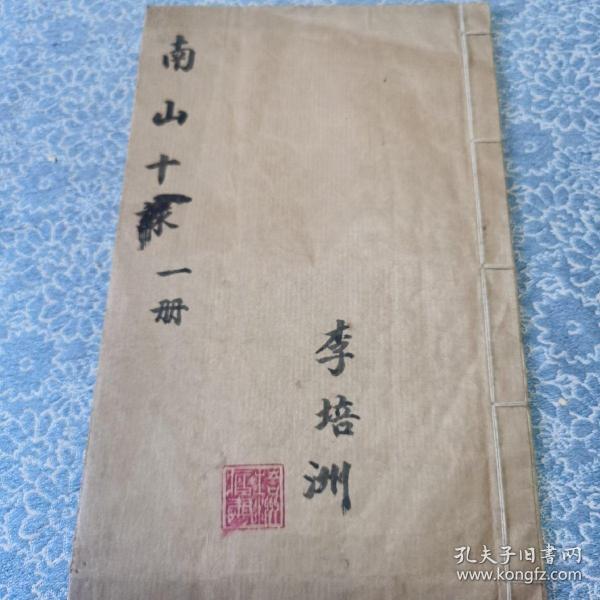 南山十
一册
李培洲
孔夫子旧书网
www.kongfz.com